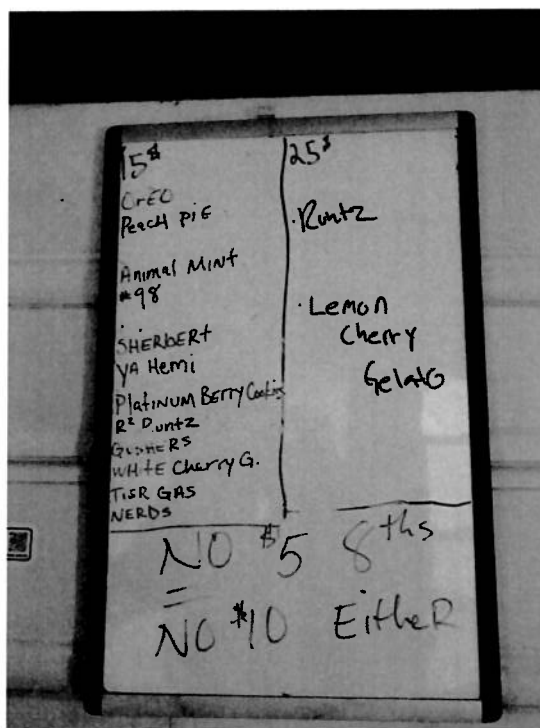 15$
OrEO
PEACH PiE
Animal MINT
#98
SHERBERT
YA Hemi
PlatiNUM BERRY Cookies
GUSHERS
WHItE Cherry G.
GAS
NERDS
25$
·Runtz
·Lemon
Cherry
GelatO
NO $5 8ths
NO $10 EitheR